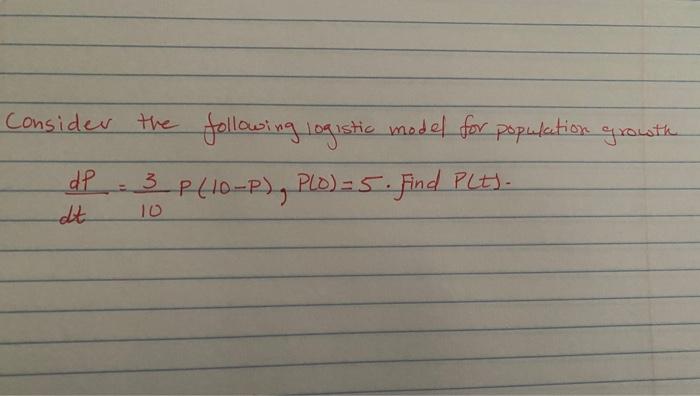 Consider the following logistic model for population growth
dP/dt = 3/10 P(10-P), P(0)=5. Find P(t).